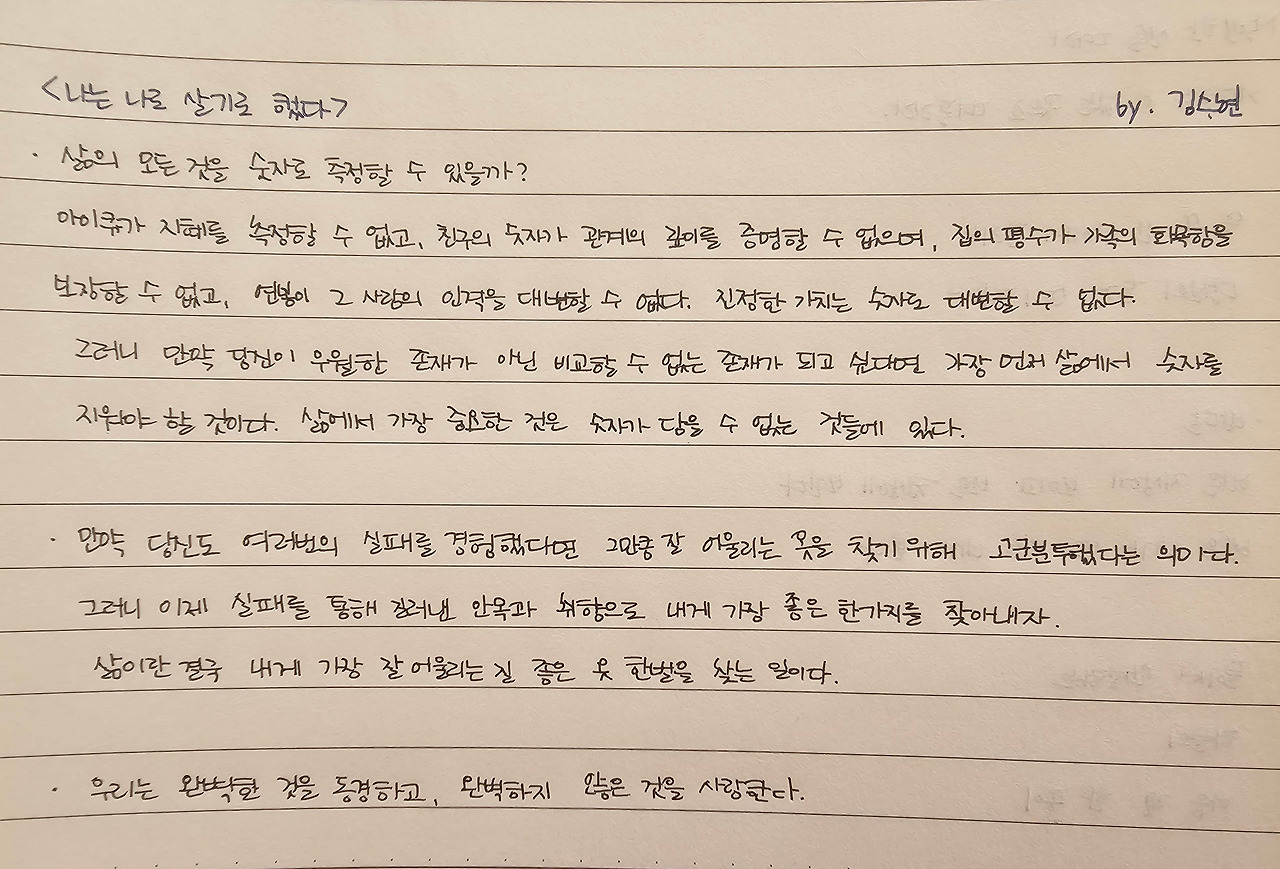 <나는 나로 살기로 했다> by. 김수현
· 삶의 모든 것을 숫자로 측정할 수 있을까?
아이큐가 지혜를 측정할 수 없고, 친구의 숫자가 관계의 깊이를 증명할 수 없으며, 집의 평수가 가족의 화목함을
보장할 수 없고, 연봉이 그 사람의 인격을 대변할 수 없다. 진정한 가치는 숫자로 대변할 수 없다.
그러니 만약 당신이 우월한 존재가 아닌 비교할 수 없는 존재가 되고 싶다면 가장 먼저 삶에서 숫자를
지워야 할 것이다. 삶에서 가장 중요한 것은 숫자가 담을 수 없는 것들에 있다.
· 만약 당신도 여러번의 실패를 경험했다면 그만큼 잘 어울리는 옷을 찾기 위해 고군분투했다는 의미다.
그러니 이제 실패를 통해 길러낸 안목과 취향으로 내게 가장 좋은 한가지를 찾아내자.
삶이란 결국 내게 가장 잘 어울리는 질 좋은 옷 한벌을 찾는 일이다.
· 우리는 완벽한 것을 동경하고, 완벽하지 않은 것을 사랑한다.